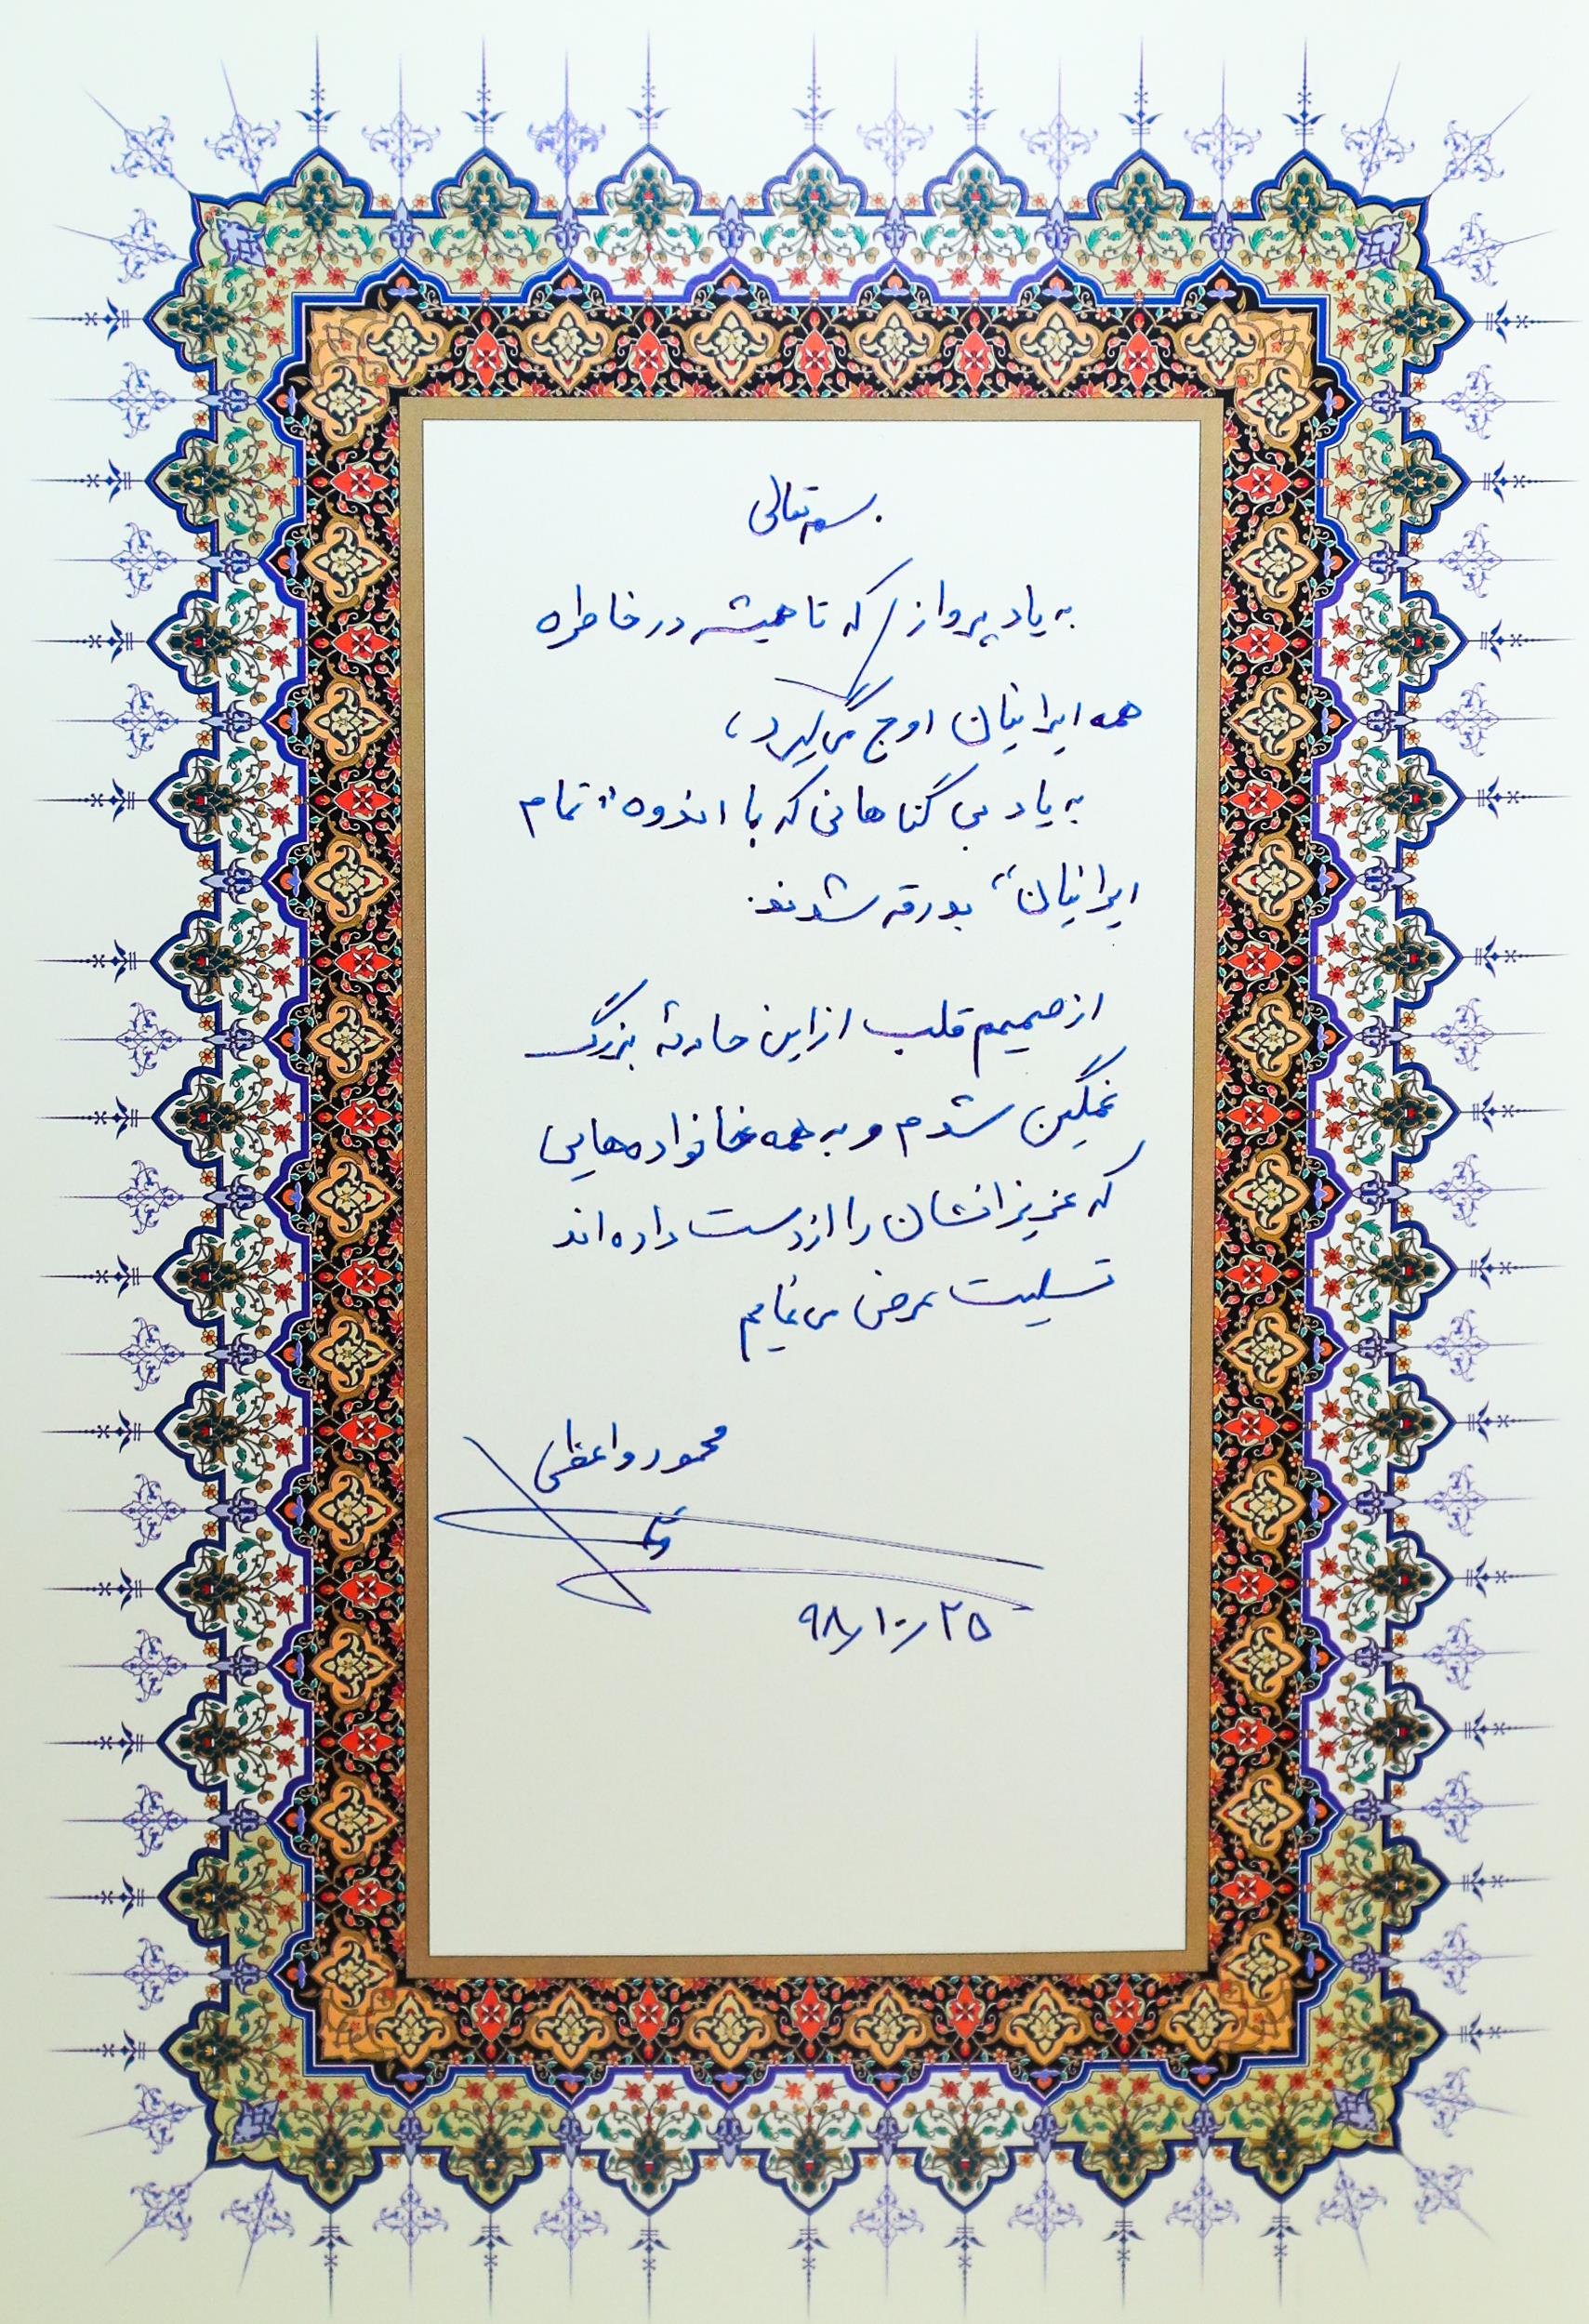 بسمه تعالی
به یاد پرواز که تا همیشه در خاطره
همه ایرانیان اوج می‌گیرد،
به یاد بی گناهانی که با اندوه "تمام
ایرانیان" بدرقه شدند.
از صمیم قلب از این حادثهٔ بزرگ
غمگین شدم و به همه خانواده‌هایی
که عزیزانشان را از دست داده‌اند
تسلیت عرض می‌نمایم
محمود واعظی
۹۸/۱۰/۲۵